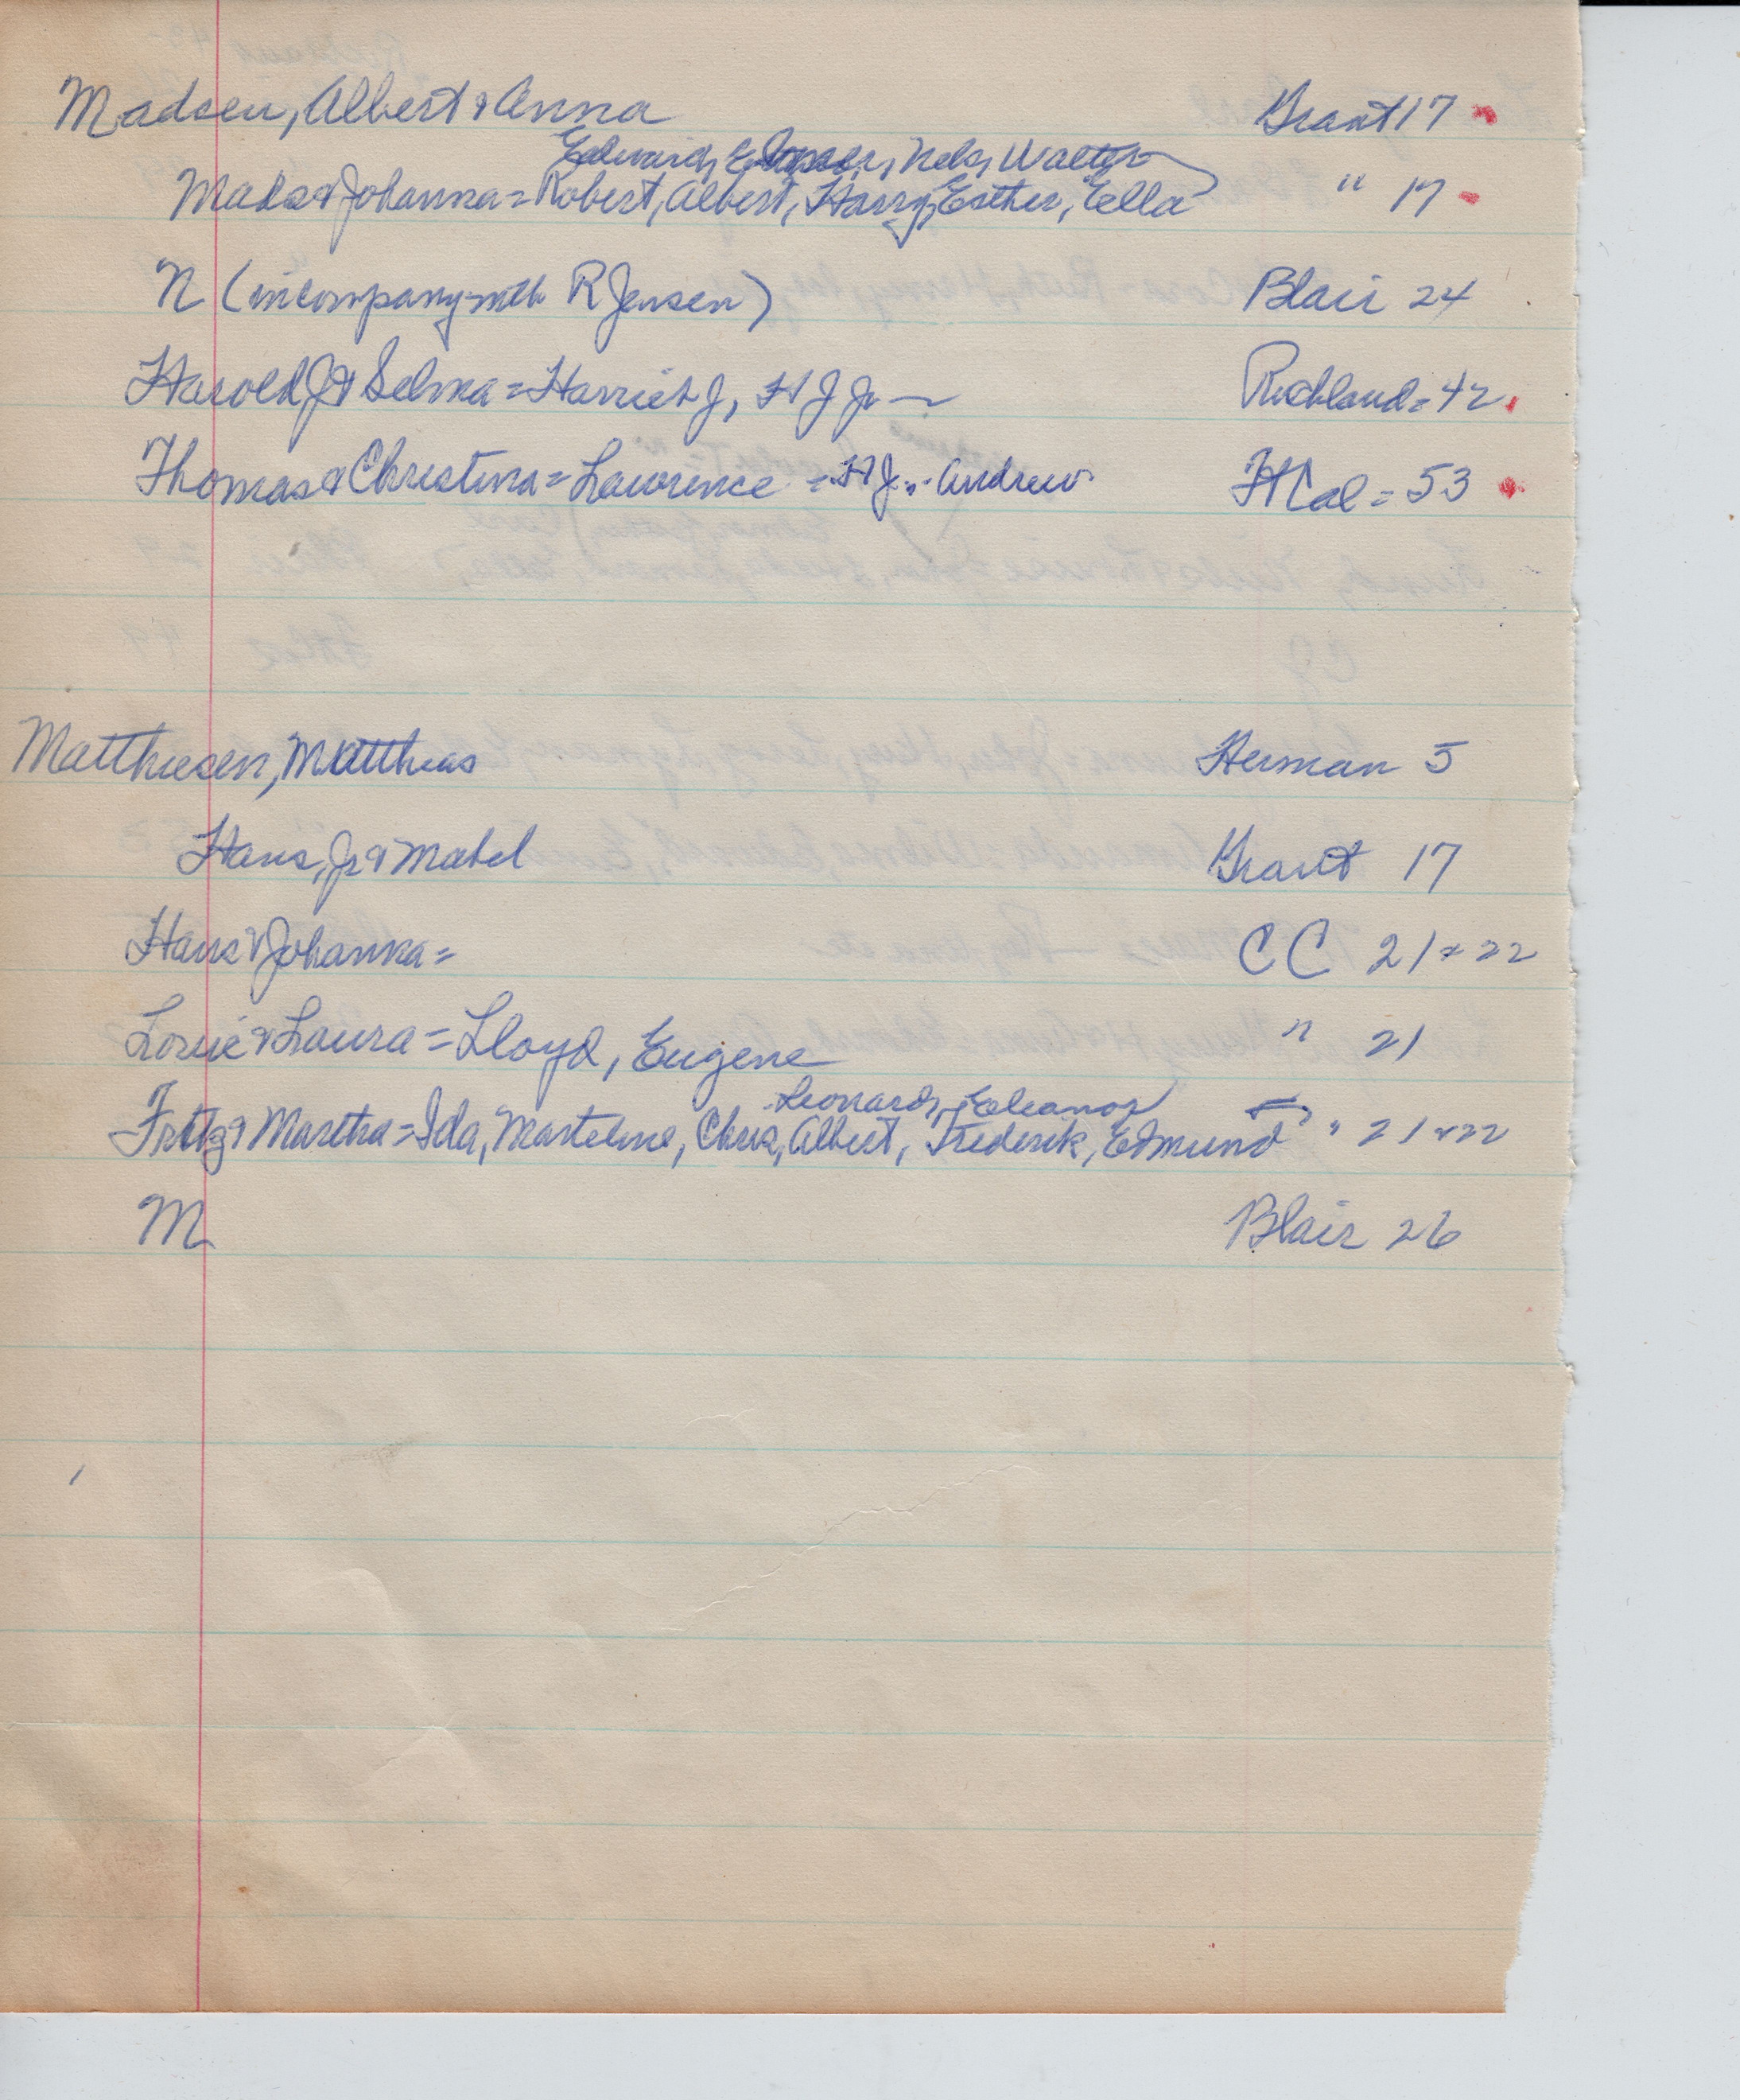 Madsen, Albert & Anna Grant 17
Edward, Elmer, Nels, Walter
Mads & Johanna = Robert, Albert, Harry, Esther, Ella " 17
N (in company with R Jensen) Blair 24
Harold J & Selma = Harriet J, H J Jr — Richland = 42
Thomas & Christina = Lawrence = H J. Andrew Ft Cal = 53
Matthiesen, Matthias Herman 5
Hans, Jr & Mabel Grant 17
Hans & Johanna = CC 21 & 22
Louie & Laura = Lloyd, Eugene " 21
Leonard, Eleanor
Fritz & Martha = Ida, Marteline, Chris, Albert, Frederik, Edmund " 21 & 22
M Blair 26